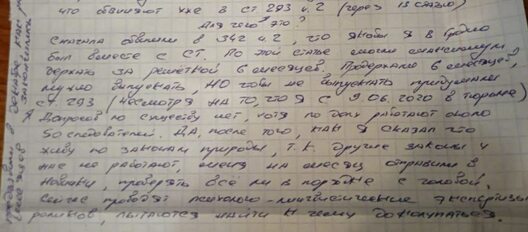 что обвиняют уже в ст 293 ч.2 (через 13 статью)
Для чего это?
Сначала обвинили в 342 ч.2, что якобы я в Гродно
был вместе с СТ. По этой статье смогли максимум
держать за решёткой 6 месяцев. Продержали 6 месяцев,
нужно выпускать, НО чтобы не выпускать придумали
ст. 293 (несмотря на то, что я с 9.06.2020 в тюрьме)
Допросов по существу нет, хотя по делу работают около
50 следователей. ДА, после того, как я сказал что
живу по законам природы, т.к. другие законы у
нас не работают, меня на месяц отправили в
Новинки, проверять всё ли в порядке с головой.
Сейчас проводят психолого-лингвистические экспертизы
роликов, пытаются найти к чему докопаться.